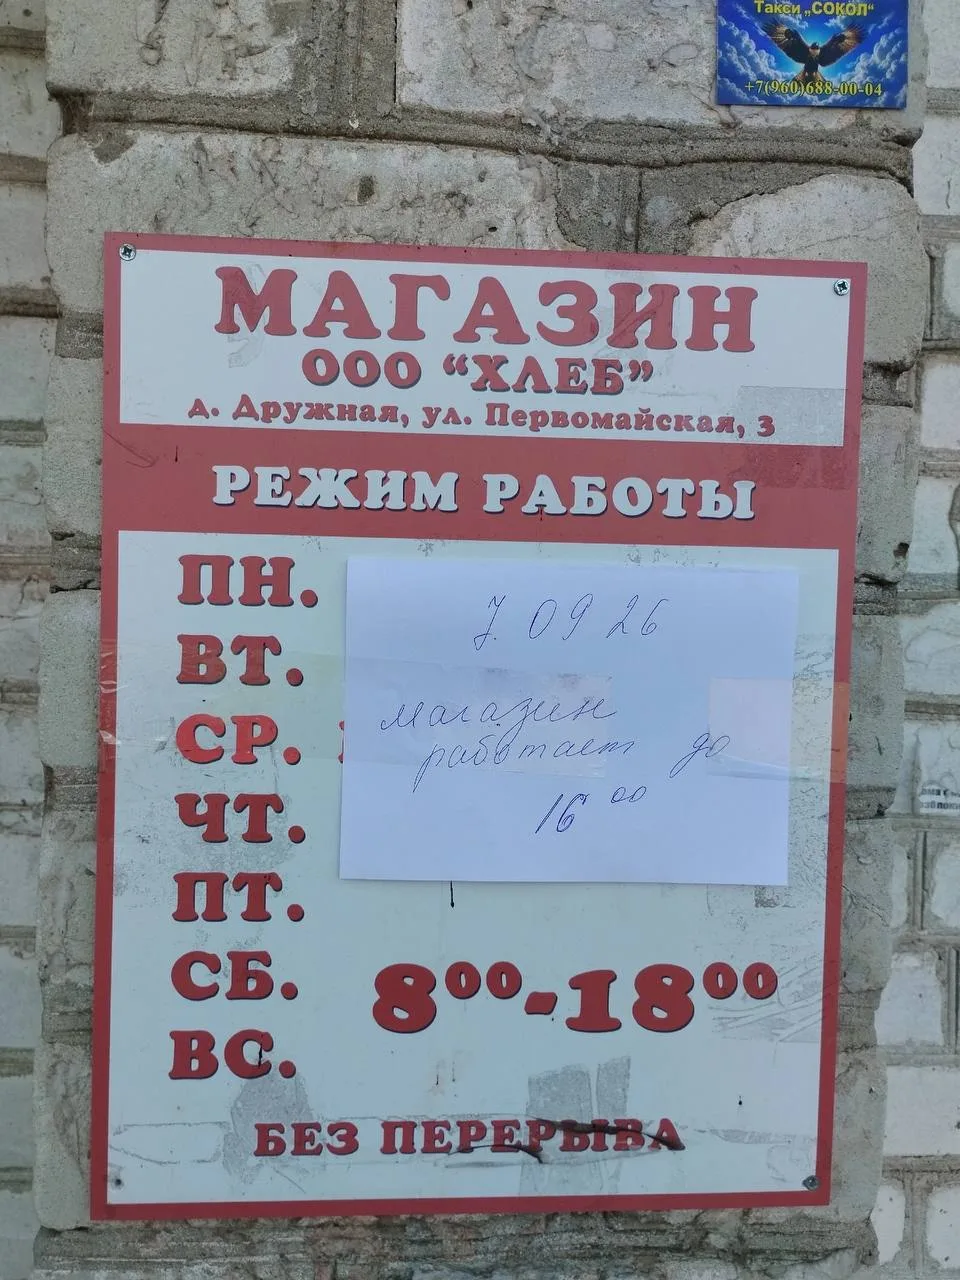 Такси „СОКОЛ“
+7(960)688-00-04
МАГАЗИН
ООО “ХЛЕБ”
д. Дружная, ул. Первомайская, 3
РЕЖИМ РАБОТЫ
ПН.
ВТ.
СР.
ЧТ.
ПТ.
СБ.
ВС.
7. 09 26
магазин
работает до
16 00
8 00-18 00
БЕЗ ПЕРЕРЫВА